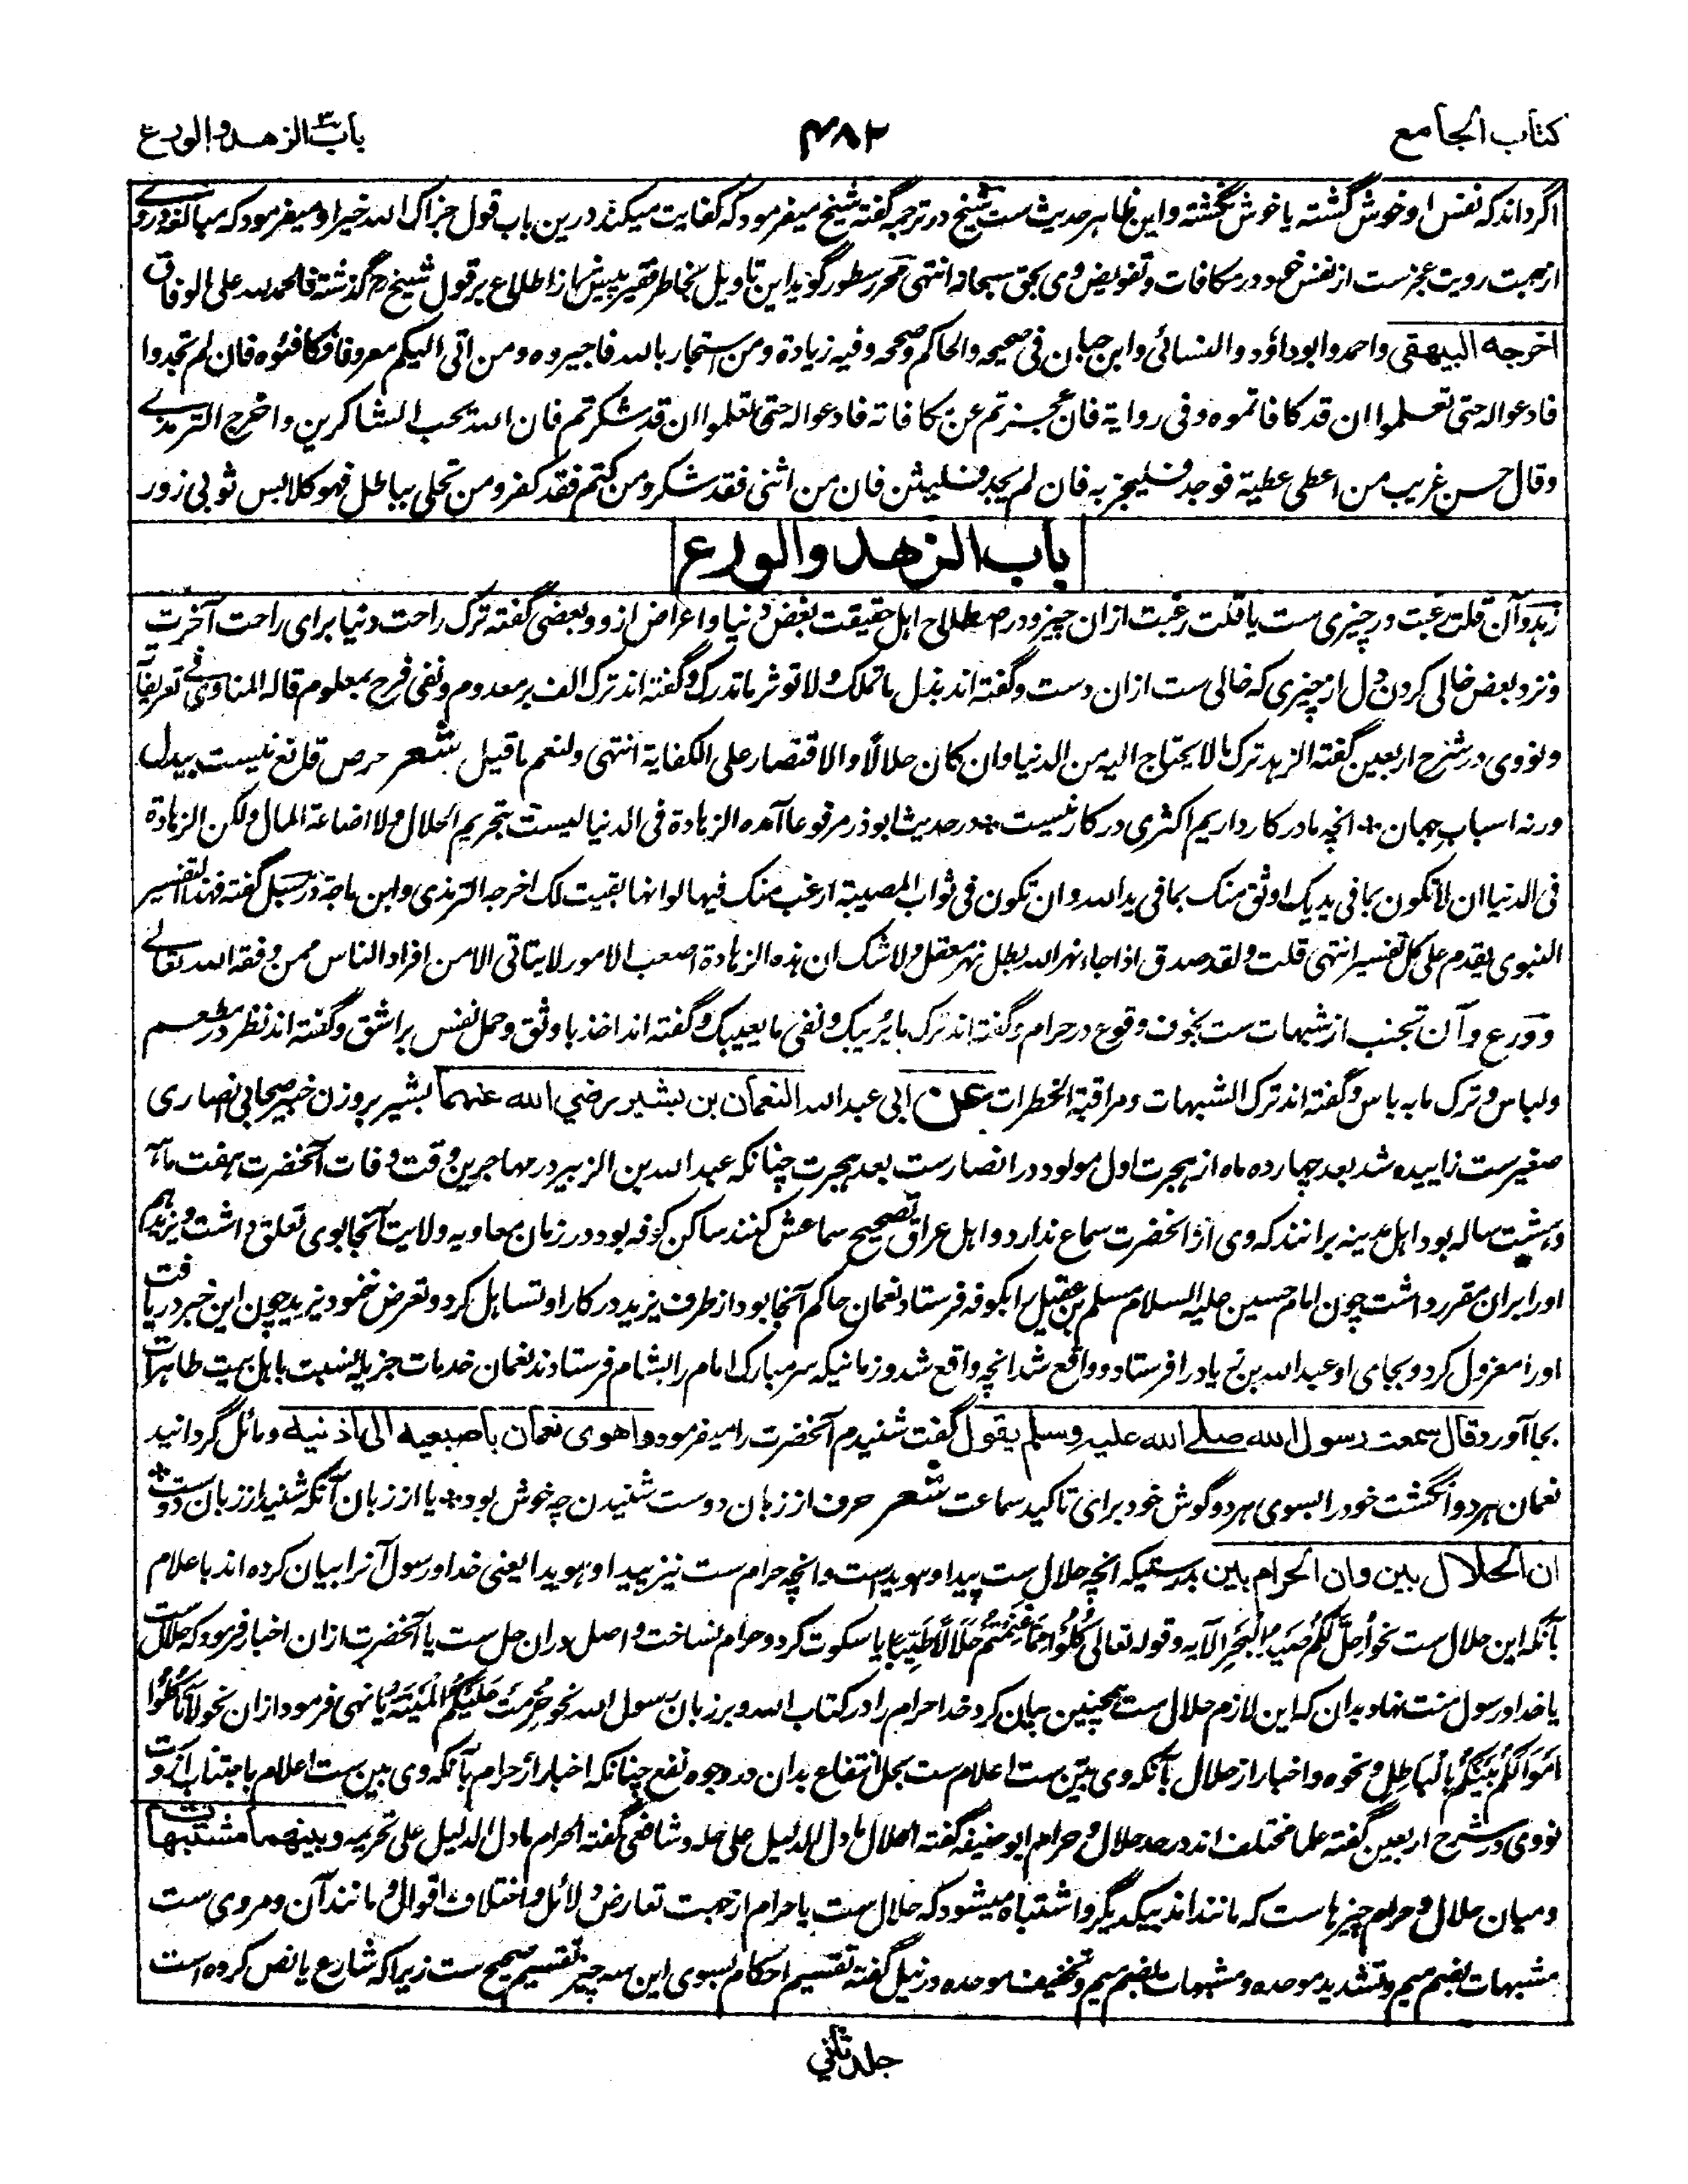 کتاب الجامع
۴۸۲
باب الزهد والورع
اگر داند که نفس او خوش گشته یا خوش نگشته و این ظاهر حدیث ست شیخ در ترجمه گفته شیخ میفرمود که کفایت میکند درین باب قول جزاک الله خیرا و میفرمود که مبالغه دروی
از جهت رویت عجز ست از نفس خود در مکافات و تفویض وی بحق سبحانه انتهی محرر سطور گوید این تاویل بخاطر فقیر پیش از اطلاع بر قول شیخ رح گذشته فالحمد لله علی الوفاق
اخرجه البیهقی واحمد وابو داؤد والنسائی وابن حبان فی صحیحه والحاکم وصححه وفیه زیادة ومن استجار بالله فاجیروه ومن اتی الیکم معروفا فکافئوه فان لم تجدوا
فادعوا له حتی تعلموا ان قد کافاتموه وفی روایة فان عجزتم عن مکافاته فادعوا له حتی تعلموا ان قد شکرتم فان الله یحب الشاکرین واخرج الترمذی
وقال حسن غریب من اعطی عطیة فوجد فلیجز به فان لم یجد فلیثن فان من اثنی فقد شکر ومن کتم فقد کفر ومن تحلی بباطل فهو کلابس ثوبی زور
باب الزهد والورع
زهد و آن قلت رغبت در چیزی ست یا قلت رغبت ازان چیز و در اصطلاح اهل حقیقت بغض دنیا و اعراض ازو و بعضی گفته ترک راحت دنیا برای راحت آخرت
و نزد بعض خالی کردن دل از چیزی که خالی ست ازان دست و گفته اند بذل ما تملک ولا توثر ما تدرک و گفته اند ترک الف بر معدوم و نفی فرح بمعلوم قاله المناوی فی تعریفاته
و نووی در شرح اربعین گفته الزهد ترک ما لا یحتاج الیه من الدنیا وان کان حلالا والاقتصار علی الکفایة انتهی ولنعم ما قیل شعر حرص قانع نیست بیدل
ورنه اسباب جهان ٭ انچه ما در کار داریم اکثری در کار نیست ٭ در حدیث ابوذر مرفوعا آمده الزهادة فی الدنیا لیست بتحریم الحلال ولا اضاعة المال ولکن الزهادة
فی الدنیا ان لا تکون بما فی یدیک اوثق منک بما فی ید الله وان تکون فی ثواب المصیبة ارغب منک فیها لو انها بقیت لک اخرجه الترمذی وابن ماجة در سبل گفته فهذا التفسیر
النبوی یقدم علی کل تفسیر انتهی قلت ولقد صدق اذا جاء نهر الله بطل نهر معقل ولا شک ان هذه الزهادة اصعب الامور لا یتاتی الا من افراد الناس ممن وفقه الله تعالی
و ورع و آن تجنب از شبهات ست بخوف وقوع در حرام و گفته اند ترک ما یریبک و نفی ما یعیبک و گفته اند اخذ باوثق و حمل نفس بر اشق و گفته اند نظر در مطعم
و لباس و ترک ما به باس و گفته اند ترک الشبهات و مراقبة الخطرات عن ابی عبد الله النعمان بن بشیر رضی الله عنهما بشیر بر وزن خبیر صحابی انصاری
صغیر ست زاییده شد بعد چهارده ماه از هجرت اول مولود در انصار ست بعد هجرت چنانکه عبد الله بن الزبیر در مهاجرین وقت وفات آنحضرت هفت ماه
و هشت ساله بود اهل مدینه برانند که وی از آنحضرت سماع ندارد و اهل عراق تصحیح سماعش کنند ساکن کوفه بود در زمان معاویه ولایت آنجا بوی تعلق داشت و یزید هم
او را بران مقرر داشت چون امام حسین علیه السلام مسلم بن عقیل را بکوفه فرستاد نعمان حاکم آنجا بود از طرف یزید در کار او تساهل کرد و تعرض ننمود یزید چون این خبر دریافت
او را معزول کرد و بجای او عبد الله بن زیاد را فرستاد و واقع شد انچه واقع شد و زمانیکه سر مبارک امام را بشام فرستادند نعمان خدمات جزیله نسبت باهل بیت طاهرات
بجا آورد قال سمعت رسول الله صلی الله علیه وسلم یقول گفت شنیدم آنحضرت را میفرمود واهوی نعمان باصبعیه الی اذنیه و مائل گردانید
نعمان هر دو انگشت خود را بسوی هر دو گوش خود برای تاکید سماعت شعر حرف از زبان دوست شنیدن چه خوش بود ٭ یا از زبان آنکه شنید از زبان دوست ٭
ان الحلال بین وان الحرام بین بدرستیکه انچه حلال ست پیدا و هویداست و انچه حرام ست نیز پیدا و هویدا یعنی خدا و رسول آنرا بیان کرده اند باعلام
بآنکه این حلال ست نحو اُحِلَّ لَکُمْ صَیْدُ الْبَحْرِ الآیه و قوله تعالی فَکُلُوْا مِمَّا غَنِمْتُمْ حَلَالًا طَیِّبًا یا سکوت کرد و حرام نساخت و اصل دران حل ست یا آنحضرت ازان اخبار فرمود که حلال ست
یا خدا و رسول منت نهاد بدان که این لازم حلال ست همچنین بیان کرد خدا حرام را در کتاب الله و بر زبان رسول الله نحو حُرِّمَتْ عَلَیْکُمُ الْمَیْتَةُ یا نهی فرمود ازان نحو لَا تَاْکُلُوْا
اَمْوَالَکُمْ بَیْنَکُمْ بِالْبَاطِلِ و نحوه و اخبار از حلال بآنکه وی بیّن ست اعلام ست بحل انتفاع بدان در وجوه نفع چنانکه اخبار از حرام بآنکه وی بین ست اعلام باجتناب از وست
نووی در شرح اربعین گفته علما مختلف اند در حد حلال و حرام ابو حنیفه گفته الحلال ما دل الدلیل علی حله و شافعی گفته الحرام ما دل الدلیل علی تحریمه وبینهما مشتبهات
و میان حلال و حرام چیزها ست که مانند اند بیکدیگر و اشتباه میشود که حلال ست یا حرام از جهت تعارض دلائل و اختلاف اقوال و مانند آن و مروی ست
مشبهات بضم میم و تشدید موحده و مشبهات بضم میم و تخفیف موحده در نیل گفته تقسیم احکام بسوی این سه چیز تقسیم صحیح ست زیرا که شارع یا نص کرده است
جلد ثانی